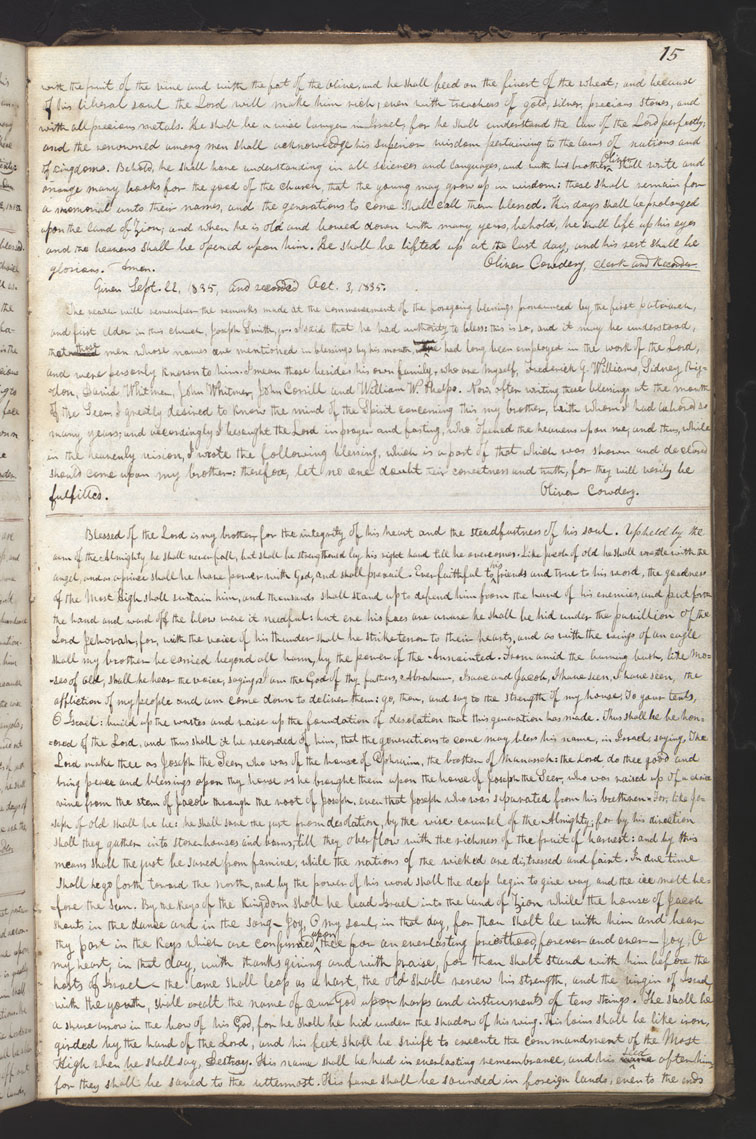 15
with the fruit of the vine and with the fat of the olive, and he shall feed on the finest of the wheat; and because
of his liberal soul the Lord will make him rich; even with treachers of gold, silver, precious stones, and
with all precious metals. He shall be a wise lawyer in Israel; for he shall understand the law of the Lord perfectly;
and the renowned among men shall acknowledge his superior wisdom pertaining to the laws of nations and
of kingdoms. Behold, he shall have understanding in all sciences and languages, and with his brother Oliver shall write and
arrange many books for the good of the church, that the young may grow up in wisdom: these shall remain for
a memorial unto their names, and the generations to come shall call them blessed. His days shall be prolonged
upon the land of Zion; and when he is old and bowed down with many years, behold, he shall lift up his eyes
and the heavens shall be opened upon him. He shall be lifted up at the last day, and his rest shall be
glorious. Amen. Oliver Cowdery, Clerk and Recorder
Given Sept. 22, 1835, and recorded Oct. 3, 1835.
The reader will remember the remarks made at the commencement of the foregoing blessings pronounced by the first patriarch,
and first elder in this church, Joseph Smith, jr. I said that he had authority to bless: this is so, and it may be understood,
that those men whose names are mentioned in blessings by his mouth had long been employed in the work of the Lord,
and were personly known to him. I mean those besides his own family, who are myself, Frederick G. Williams, Sidney Rig-
don, David Whitmer, John Whitmer, John Corrill and William W. Phelps. Now, after writing these blessings at the mouth
of the Seer, I greatly desired to know the mind of the Spirit concerning this my brother, with whom I had labored so
many years; and accordingly I besought the Lord in prayer and fasting, who opened the heavens upon me; and thus, while
in the heavenly vision, I wrote the following blessing, which is a part of that which was shown and declared
should come upon my brother: therefore, let no one doubt their correctness and truth, for they will verily be
fulfilled. Oliver Cowdery.
Blessed of the Lord is my brother for the integrity of his heart and the steadfastness of his soul. Upheld by the
arm of the Almighty he shall never fall, but shall be strengthened by his right hand till he overcomes. Like Jacob of old he shall wrestle with the
angel, and as a prince shall he have power with God, and shall prevail. Ever faithful to his friends and true to his word, the goodness
of the Most High shall sustain him, and thousands shall stand up to defend him from the hand of his enemies, and put forth
the hand and ward off the blow were it needful; but ere his foes are aware he shall be hid under the pavillion of the
Lord Jehovah; for, with the voice of his thunder shall he strike terror to their hearts, and as with the wings of an eagle
shall my brother be carried beyond all harm, by the power of the Annointed. From amid the burning bush, like Mo-
ses of old, shall he hear the voice, saying, I am the God of thy fathers, Abraham, Isaac and Jacob, I have seen, I have seen, the
affliction of my people and am come down to deliver them: go, then, and say to the strength of my house, To your tents,
O Israel: build up the wastes and raise up the foundation of desolation that this generation has made. Thus shall he be hon-
ored of the Lord, and thus shall it be recorded of him, that the generations to come may bless his name, in Israel, saying, The
Lord make thee as Joseph the Seer, who was of the house of Ephraim, the brother of Manasseh: the Lord do thee good and
bring peace and blessings upon thy house as he brought them upon the house of Joseph the Seer, who was raised up of a choice
vine from the stem of Jacob through the root of Joseph, even that Joseph who was separated from his brethren. For, like Jo-
seph of old shall he be: he shall save the just from desolation, by the wise counsel of the Almighty; for by his direction
shall they gather into storehouses and barns, till they overflow with the richness of the fruit of harvest: and by this
means shall the just be saved from famine, while the nations of the wicked are distressed and faint. In due time
shall he go forth toward the north, and by the power of his word shall the deep begin to give way and the ice melt be-
fore the sun. By the keys of the Kingdom shall he lead Israel into the land of Zion while the house of Jacob
shouts in the dance and in the song— Joy, O my soul, in that day, for thou shalt be with him and bear
thy part in the keys which are confirmed upon thee for an everlasting priesthood, forever and ever— Joy, O
my heart, in that day, with thanksgiving and with praise, for thou shalt stand with him before the
hosts of Israel— the lame shall leap as a hart, the old shall renew his strength, and the virgin of Israel,
with the youth, shall exalt the name of our God upon harps and instruments of ten strings. He shall be
a shure arrow in the bow of his God, for he shall be hid under the shadow of his wing. His loins shall be like iron,
girded by the hand of the Lord, and his feet shall be swift to execute the commandment of the Most
High when he shall say, Destroy. His name shall be had in everlasting remembrance, and his seed after him,
for they shall be saved to the uttermost. His fame shall be sounded in foreign lands, even to the ends